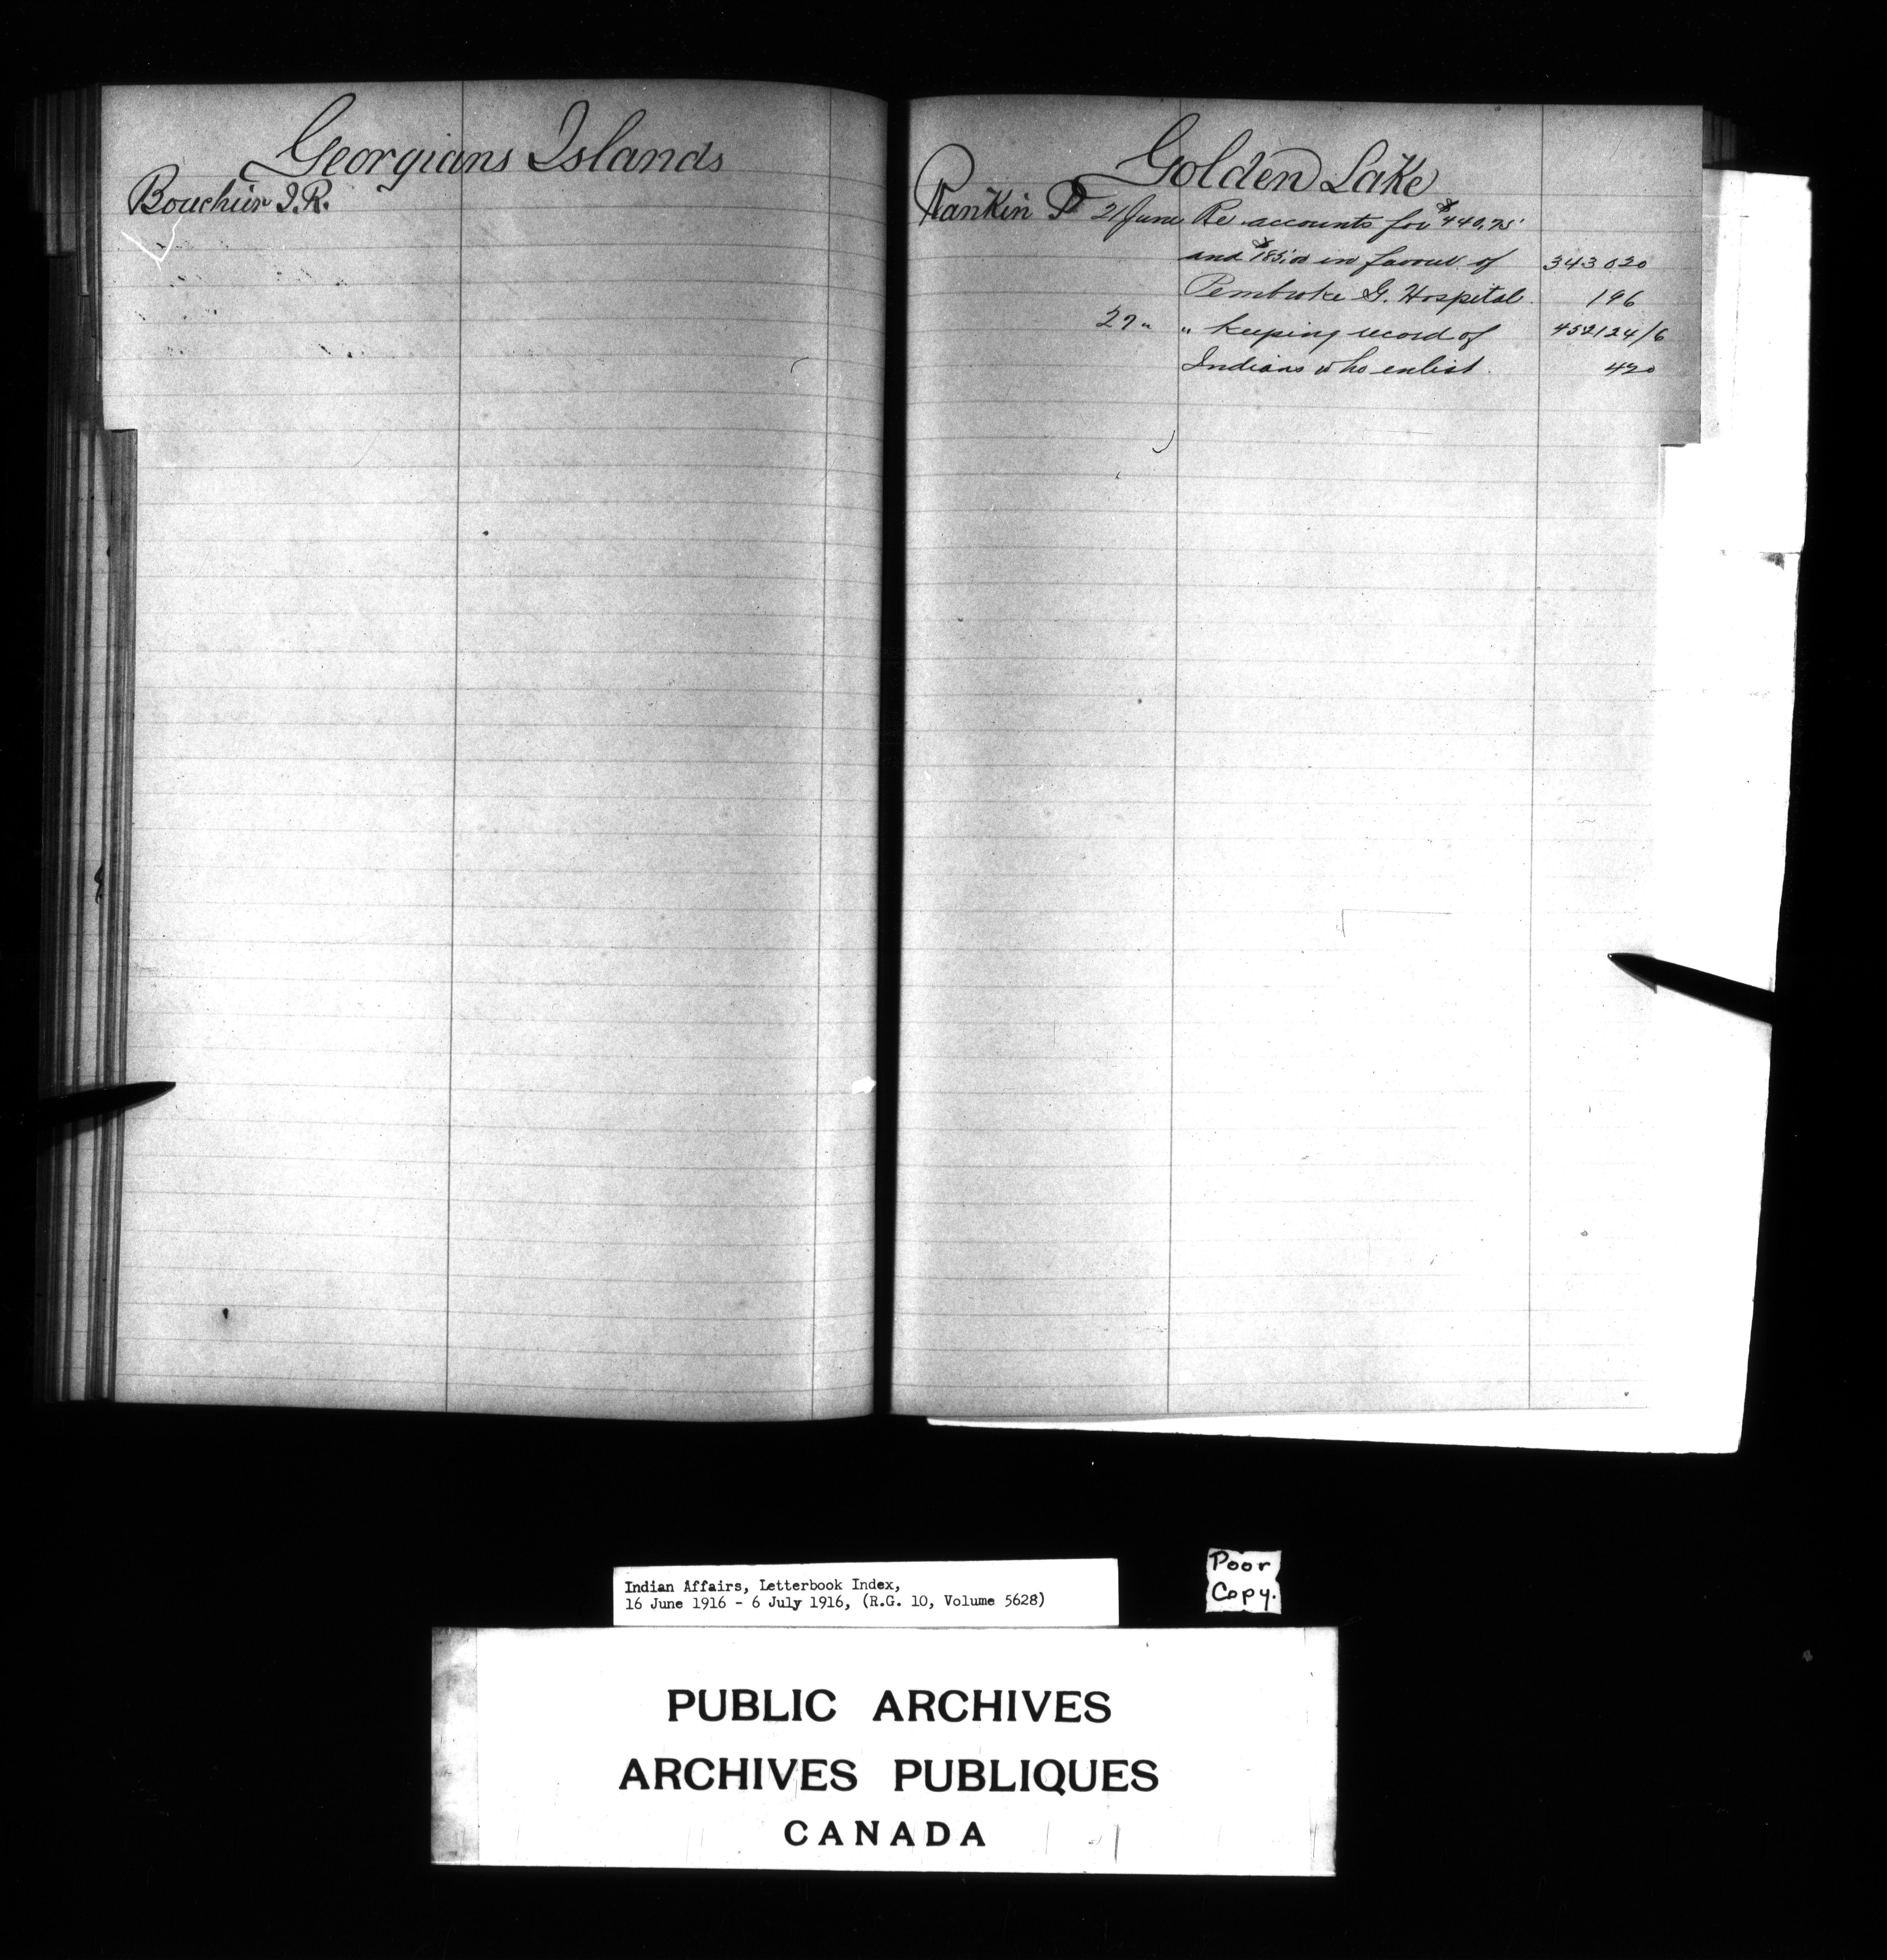 Georgians Islands
Bouchier J.R.
Golden Lake
Rankin P 21 June Re accounts for $440.75
and $185.00 in favour of 343020
Pembroke G. Hospital. 196
27 " " keeping record of 452124/6
Indians who enlist. 420
Indian Affairs, Letterbook Index,
16 June 1916 - 6 July 1916, (R.G. 10, Volume 5628)
Poor
Copy.
PUBLIC ARCHIVES
ARCHIVES PUBLIQUES
CANADA